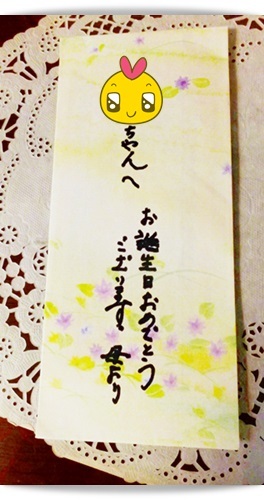 ちゃんへ
お誕生日おめでとう
ございます。
母より